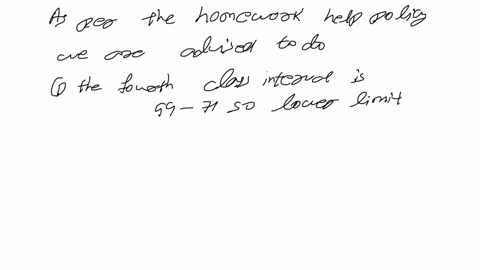 As per the homework help policy
we are advised to do
① the fourth class interval is
59 - 71 so lower limit